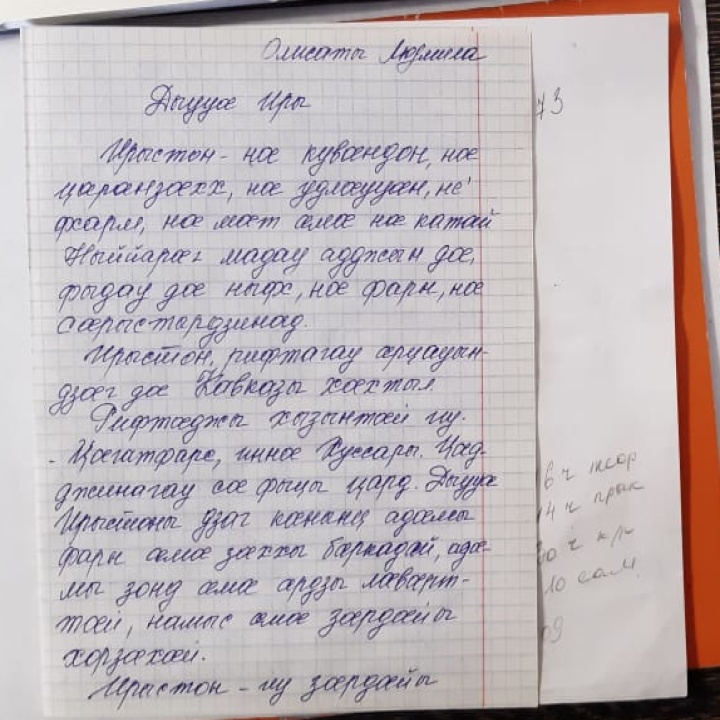 Олисаты Людмила
Дыууæ Иры
Ирыстон - нæ кувæндон, нæ
цæрæнзæхх, нæ удлæууæн, не'
фхæрм, нæ мæт æмæ нæ катай
Ныййарæг мадау адджын дæ,
фыдау дæ ныфс, нæ фарн, нæ
сæрыстырдзинад.
Ирыстон, рифтагау æруагъын-
дзæг дæ Кавказы хæхтыл
Рифтæджы хызынтæй иу.
- Цæгатфарс, иннæ Хуссары. Цæд-
джинагау сæ фыцы цард. Дыууæ
Ирыстоны дзаг кæнынц адæмы
фарн æмæ зæххы бæркадæй, адæ-
мы зонд æмæ æрдзы лæвæрт-
тæй, намыс æмæ зæрдæйы
хорзæхæй.
Ирыстон - иу зæрдæйы
73
6 ч теор
14 ч прак
10 сам
09